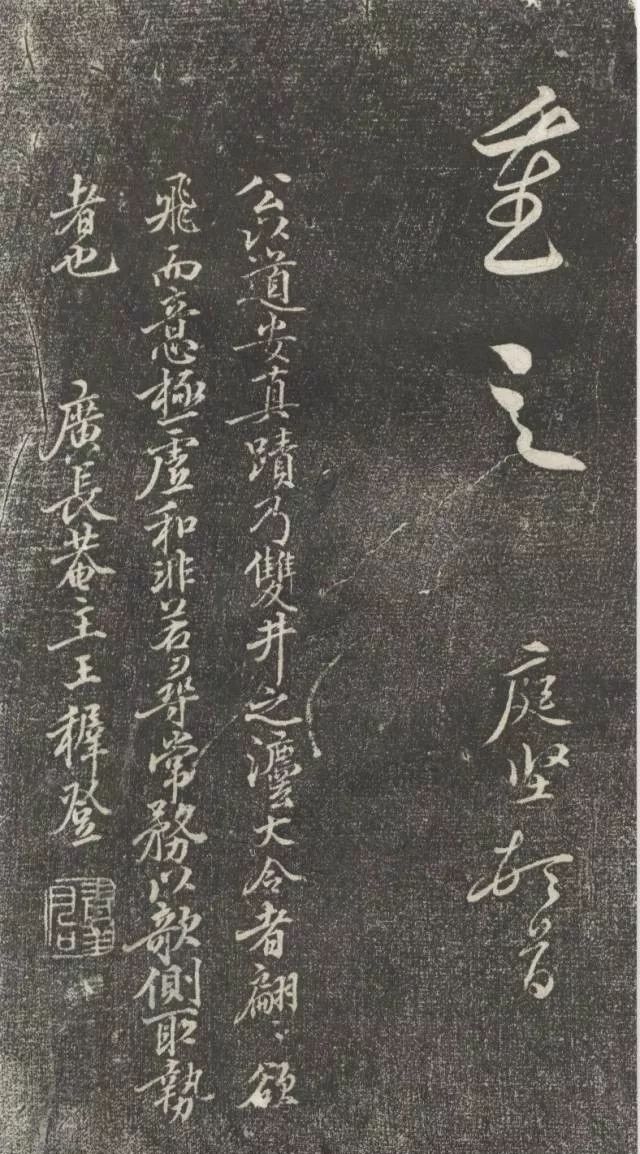 重之　庭堅頓首
公以道安真蹟乃雙井之灋大令者翩〻欲
飛而意極虛和非若尋常務以欹側取勢
者也　廣長菴主王穉登